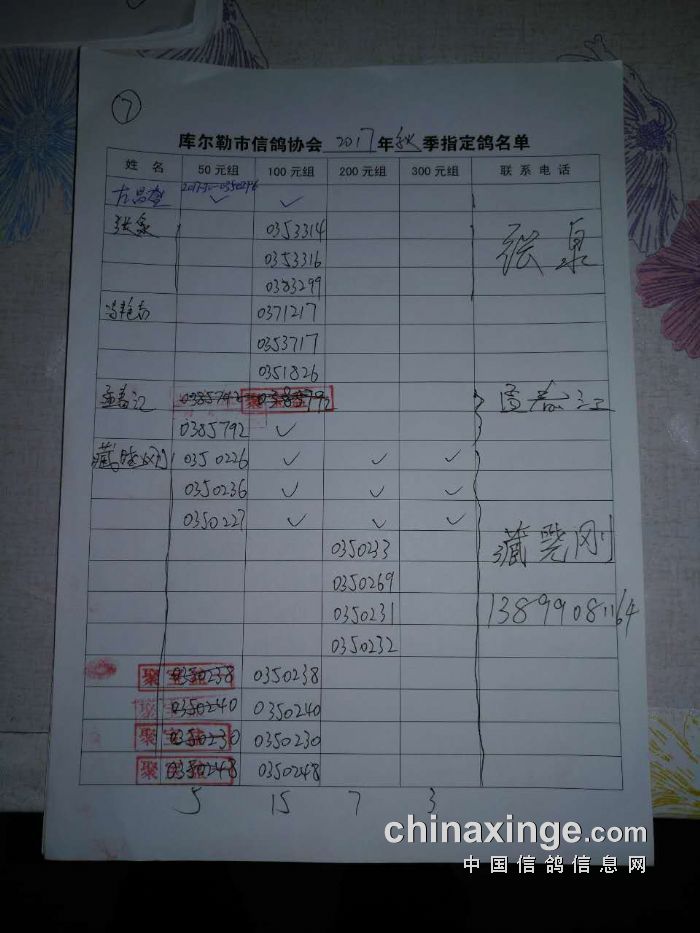 7
库尔勒市信鸽协会 2017 年 秋 季指定鸽名单
姓 名 50元组 100元组 200元组 300元组 联系电话
✓ ✓
张泉 0353314 张泉
0353316
0383299
0371217
0353717
0351826
0385792 0385792
0385792 ✓
藏晓刚 0350226 ✓ ✓ ✓
0350236 ✓ ✓ ✓
0350227 ✓ ✓ ✓
0350233 藏晓刚
0350269
0350231 13899081164
0350232
0350238 0350238
0350240 0350240
0350230 0350230
0350248 0350248
5 15 7 3
chinaxinge.com
中国信鸽信息网